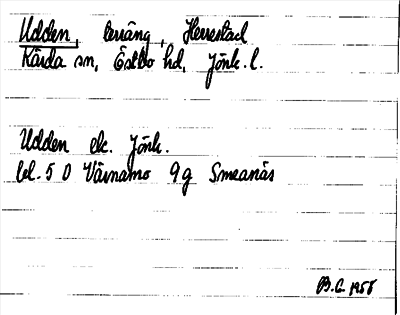 Udden, terräng, Herrestad
Kärda sn, Östbo hd, Jönk. l.
Udden ek. Jönk.
bl. 5 O Värnamo 9g Smeanäs
B.C. 1958